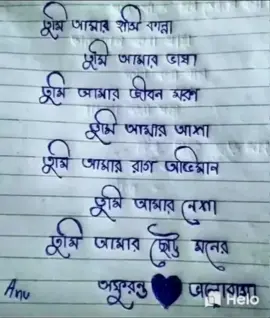 তুমি আমার হাসি কান্না
তুমি আমার ভাষা
তুমি আমার জীবন মরন
তুমি আমার আশা
তুমি আমার রাগ অভিমান
তুমি আমার নেশা
তুমি আমার ছোট্ট মনের
অফুরন্ত ভালোবাসা
Anu
Helo